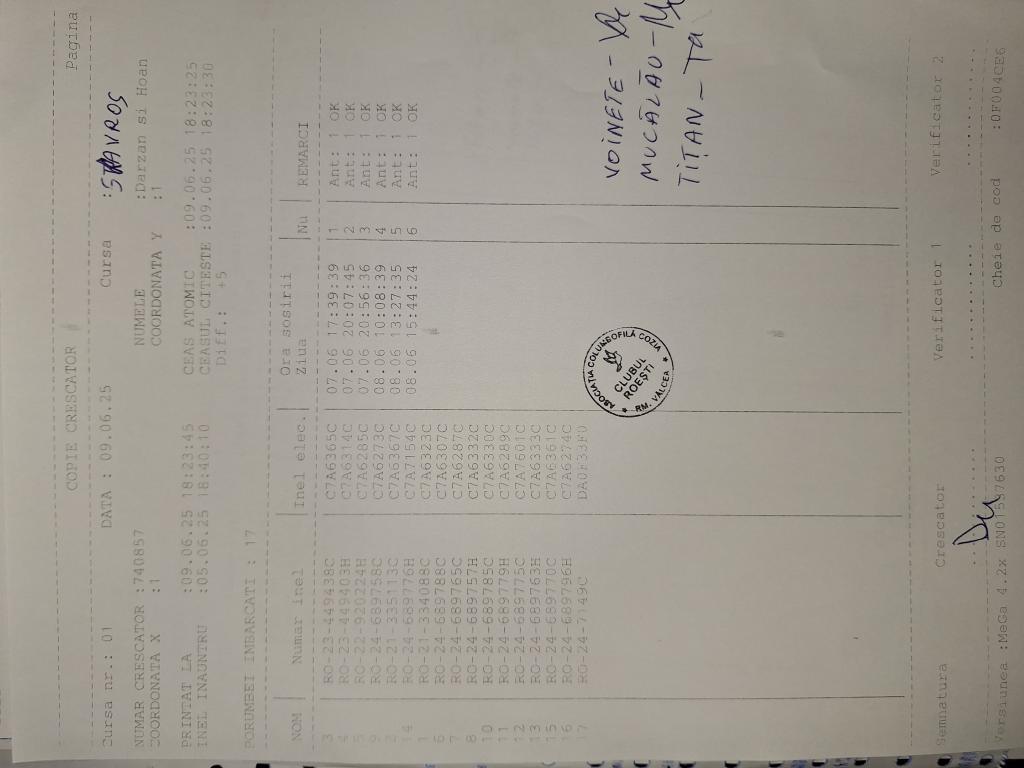 COPIE CRESCATOR
Pagina
Cursa nr.: 01 DATA : 09.06.25 Cursa : STAVROS
NUMAR CRESCATOR :740857 NUMELE :Darzan si Hoan
COORDONATA X :1 COORDONATA Y :1
PRINTAT LA :09.06.25 18:23:45 CEAS ATOMIC :09.06.25 18:23:25
INEL INAUNTRU :05.06.25 18:40:10 CEASUL CITESTE :09.06.25 18:23:30
Diff.: +5
PORUMBEI IMBARCATI : 17
NOM Numar inel Inel elec. Ora sosirii Ziua Nu REMARCI
3 RO-23-449438C C7A6365C 07.06 17:39:39 1 Ant: 1 OK
4 RO-23-449403H C7A6314C 07.06 20:07:45 2 Ant: 1 OK
5 RO-22-920224H C7A6285C 07.06 20:56:36 3 Ant: 1 OK
9 RO-24-689758C C7A6273C 08.06 10:08:39 4 Ant: 1 OK
2 RO-21-335113C C7A6367C 08.06 13:27:35 5 Ant: 1 OK
14 RO-24-689776H C7A7154C 08.06 15:44:24 6 Ant: 1 OK
1 RO-21-334088C C7A6323C
6 RO-24-689788C C7A6307C
7 RO-24-689765C C7A6287C
8 RO-24-689757H C7A6332C
10 RO-24-689785C C7A6330C
11 RO-24-689779H C7A6289C
12 RO-24-689775C C7A7601C
13 RO-24-689763H C7A6333C
15 RO-24-689770C C7A6361C
16 RO-24-689796H C7A6274C
17 RO-24-7149C DA0F33F0
ASOCIATIA COLUMBOFILĂ COZIA
CLUBUL
ROEŞTI
RM. VÂLCEA
VOINETE -
MUCĂLĂU -
TIȚAN -
Semnatura Crescator Verificator 1 Verificator 2
Versiunea :MeGa 4.2x SN01537630 Cheie de cod :0F004CE6